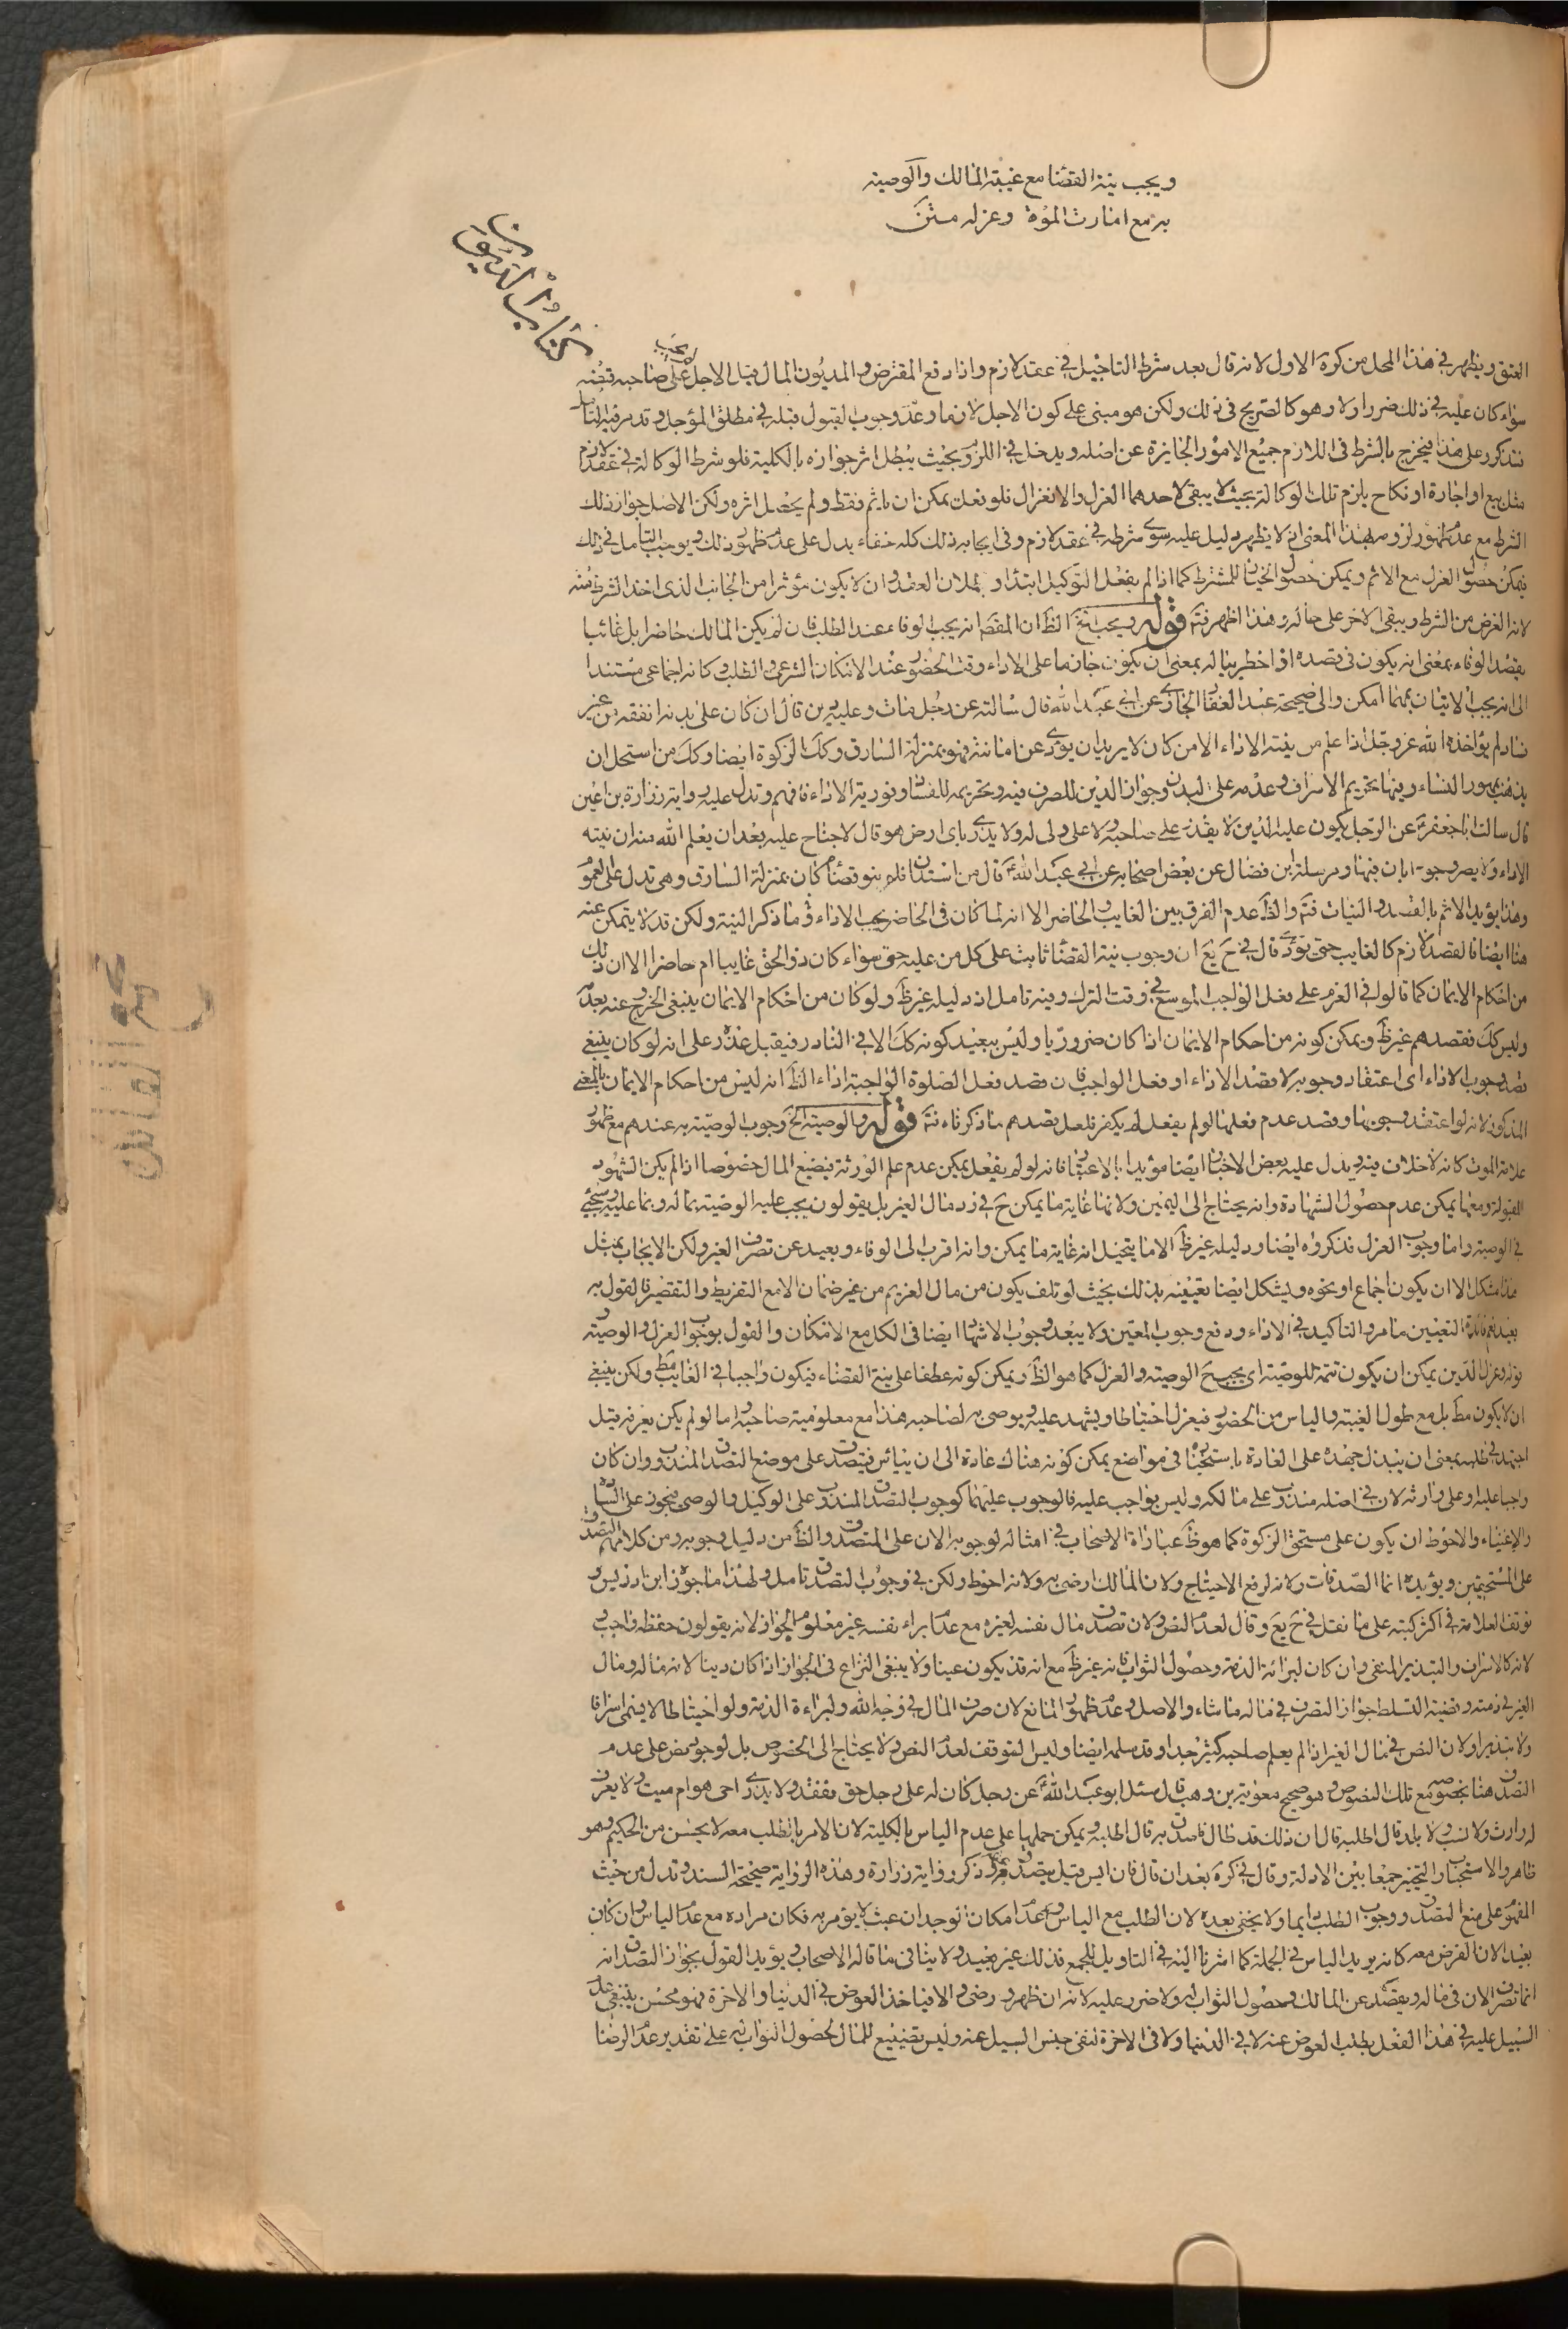 ويجب نية القضا مع غيبة المالك والوصية
به مع امارت الموة وعزله متن
كتاب الديون
العتق ويظهر في هذا المحل من كرة الاول لانه قال بعد شرط التاجيل في عقد لازم واذا دفع المقترض والمديون المال قبل الاجل لا يجب على صاحبه قبضه
سواء كان عليه في ذلك ضرر اولا وهو كالصريح في ذلك ولكن هو مبنى على كون الاجل لازما وعدم وجوب القبول قبله في مطلق المؤجل وقد مر فيه التامل
فتذكر وعلى هذا يخرج بالشرط في اللازم جميع الامور الجايزة عن اصله ويدخل في اللزوم بحيث يبطل اثر جوازه بالكلية فلو شرط الوكالة في عقد لازم
مثل بيع او اجارة او نكاح يلزم تلك الوكالة بحيث لا يبقى لاحدهما العزل والانعزال فلو فعلت يمكن ان ياثم فقط ولم يحصل اثره ولكن الاصل جواز ذلك
الشرط مع عدم ظهور لزومه بهذا المعنى اذ لا يظهر دليل عليه سوى شرطه في عقد لازم وفي ايجابه ذلك كله خفاء يدل على عدم ظهور ذلك ويوجب التامل في ذلك
يمكن حصول العزل مع الاثم ويمكن حصول الخيار للمشترط كما اذا لم يفعل التوكيل ابتداء و بطلان العقد وان لا يكون مؤثرا من الجانب الذى اخذ الشرط منه
لانه الغرض من الشرط ويبقى الاخر على حاله وهذا اظهر فتم قوله ويجب الخ الظ ان المقص انه يجب الوفاء عند الطلب فان لم يكن المالك حاضرا بل غائبا
يقصد الوفاء بمعنى انه يكون في قصده اذا خطر بباله بمعنى ان يكون جازما على الاداء وقت الحضور عند الامكان الشرعى والطلب وكانه اجماعى مستندا
الى انه يجب الاتيان بمهما امكن والى صحيحة عبد الغفار الجازى عن ابى عبد الله قال سالته عن رجل مات وعليه دين قال ان كان على يديه انفقه من غير
فساد لم يؤاخذه الله عز وجل اذا علم من نيته الاداء الا من كان لا يريد ان يؤدى عن امانته فهو بمنزلة السارق وكك الزكوة ايضا وكك من استحل ان
يذهب بمهور النساء وفيها تحريم الاسراف وعدمه على البدن وجواز الدين للصرف فيه وتحريمه للفساد وفورية الاداء فافهم وتدل عليه رواية زرارة بن اعين
قال سالت ابا جعفر عن الرجل يكون عليه الدين لا يقدر على صاحبه ولا على ولى له ولا يدرى باى ارض هو قال لا جناح عليه بعد ان يعلم الله منه ان نيته
الاداء ولا يضر وجود ابان فيها ومرسلة ابن فضال عن بعض اصحابه عن ابى عبد الله قال من استدان فلم ينو قضاه كان بمنزلة السارق وهى تدل على العموم
وهذا يؤيد الاثم بالقصد والنيات فتم والظ عدم الفرق بين الغايب والحاضر الا انه لما كان في الحاضر يجب الاداء وما ذكر النية ولكن قد لا يتمكن عنه
هنا ايضا فالقصد لازم كالغايب حتى يؤدى قال في ح يع ان وجوب نية القضا ثابت على كل من عليه حق سواء كان ذو الحق غايبا ام حاضرا الا ان ذلك
من احكام الايمان كما قالوا في العزم على فعل الواجب الموسع في وقت الترك وفيه تامل اذ دليله غير ظ ولو كان من احكام الايمان ينبغى الخروج عنه بعدمه
وليس كك فقصدهم غير ظ ويمكن كونه من احكام الايمان اذا كان ضروريا وليس ببعيد كونه كك الا في النادر فيقبل عذره على انه لو كان ينبغى
قصد وجوب الاداء اى اعتقاد وجوبه لا قصد الاداء او فعل الواجب فان قصد فعل الصلوة الواجبة اداء الظ انه ليس من احكام الايمان بالمعنى
المذكور لانه لو اعتقد وجوبها وقصد عدم فعلها لو لم يفعل لم يكفر فلعل قصدهم ما ذكرناه فتم قوله والوصية الخ وجوب الوصية به عندهم مع ظهور
علامة الموت كانه لا خلاف فيه ويدل عليه بعض الاخبار ايضا مؤيدا بالاعتبار فانه لو لم يفعل يمكن عدم علم الورثة فيضيع المال خصوصا اذا لم يكن الشهود
القبولة ومعها يمكن عدم حصول الشهادة وانه يحتاج الى اليمين ولانها غاية ما يمكن ح في رد مال الغير بل يقولون يجب عليه الوصية بماله وبما عليه وسيجئ
في الوصية واما وجوب العزل فذكروه ايضا ودليله غير ظ الا ما يتخيل انه غاية ما يمكن وانه اقرب الى الوفاء وبعيد عن تصرف الغير ولكن الايجاب بمثل
هذا مشكل الا ان يكون اجماع او نحوه ويشكل ايضا تعيينه بذلك بحيث لو تلف يكون من مال الغريم من غير ضمان الا مع التفريط والتقصير فالقول به
بعيد نعم فائدة التعيين ما مر والتاكيد في الاداء ودفع وجوب المعين ولا يبعد وجوب الاشهاد ايضا في الكل مع الامكان والقول بوجوب العزل والوصية
قوله وعزل الدين يمكن ان يكون تتمة للوصية اى يجب ح الوصية والعزل كما هو الظ ويمكن كونه عطفا على نية القضاء فيكون واجبا في الغايب مط ولكن ينبغى
ان لا يكون مط بل مع طول الغيبة والياس من الحضور فيعزل احتياطا ويشهد عليه ويوصى به لصاحبه هذا مع معلومية صاحبه واما لو لم يكن يعرفه قيل
اجتهد في طلبه بمعنى ان يبذل جهده على العادة باستخباره في مواضع يمكن كونه هناك عادة الى ان يياس فيتصدق على موضع التصدق المندوب وان كان
واجبا عليه وعلى وارثه لان في اصله مندوب على مالكه وليس بواجب عليه فالوجوب عليهما كوجوب التصدق المندوب على الوكيل والوصى فيجوز على السادة
والاغنياء والاحوط ان يكون على مستحق الزكوة كما هو ظ عبارة الاصحاب في امثاله لوجوبه الان على المتصدق والظ من دليل وجوبه ومن كلامهم التصدق
على المستحقين ويؤيده انما الصدقات ولانه لرفع الاحتياج ولان المالك ارضى به ولانه احوط ولكن في وجوب التصدق تامل ولهذا ما جوزه ابن ادريس و
توقف العلامة في اكثر كتبه على ما نقل في ح يع وقال لعدم النص ولان تصدق مال نفسه لغيره مع عدم ابراء نفسه غير معلوم الجواز لانه يقولون حفظه واجب
لانه كالاسراف والتبذير المنفى وان كان لبرائة الذمة وحصول الثواب فانه غير ظ مع انه قد يكون عينا ولا ينبغى النزاع في الجواز اذا كان دينا لانه ماله ومال
الغير في ذمته وقضية التسلط جواز التصرف في ماله ما شاء والاصل وعدم ظهور المانع لان صرف المال في وجه الله ولبراءة الذمة ولو احتياطا لا يسمى اسرافا
ولا تبذيرا ولان النص في مال الغير اذا لم يعلم صاحبه كثير جدا وقد سلمه ايضا وليس التوقف لعدم النص ولا يحتاج الى الخصوص بل لوجود نص على عدم
التصدق هنا بخصوصه مع تلك النصوص وهو صحيح معوية بن وهب قال سئل ابو عبد الله عن رجل كان له على رجل حق ففقد ولا يدرى احى هو ام ميت ولا يعرف
له وارث ولا نسب ولا بلد قال اطلبه قال ان ذلك قد طال فاصدق به قال اطلبه ويمكن حملها على عدم الياس بالكلية لان الامر بالطلب معه لا يحسن من الحكيم وهو
ظاهر والاستحباب والتخيير جمعا بين الادلة وقال في كرة بعد ان قال فان ايس قيل يتصدق عنه ذكر رواية زرارة وهذه الرواية صحيحة السند وتدل من حيث
المفهوم على منع التصدق ووجوب الطلب دايما ولا يخفى بعده لان الطلب مع الياس وعدم امكان الوجدان عبث لا يؤمر به فكان مراده مع عدم الياس وان كان
بعيدا لان الفرض معه كانه يريد الياس في الجملة كما اشرنا اليه في التاويل للجمع فذلك غير بعيد ولا ينافى ما قاله الاصحاب ويؤيد القول بجواز التصدق انه
انما تصرف الان في ماله ويقصد عن المالك وحصول الثواب له ولا ضرر عليه لانه ان ظهر ورضى والا فياخذ العوض في الدنيا والاخرة فهو محسن ينبغى
السبيل عليه في هذا الفعل بطلب العوض عنه لا في الدنيا ولا في الاخرة لنفى جنس السبيل عنه وليس تضييع للمال لحصول الثواب له على تقدير عدم الرضا